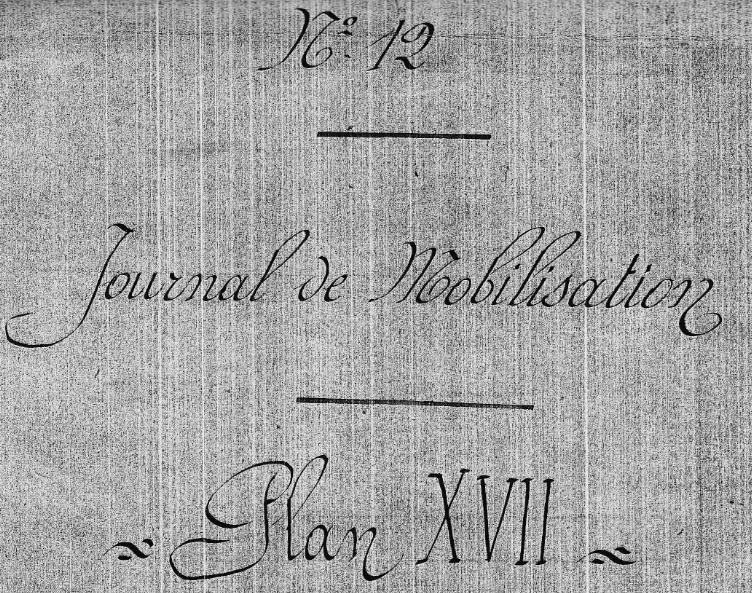 Nº 12
Journal de Mobilisation
~ Plan XVII ~